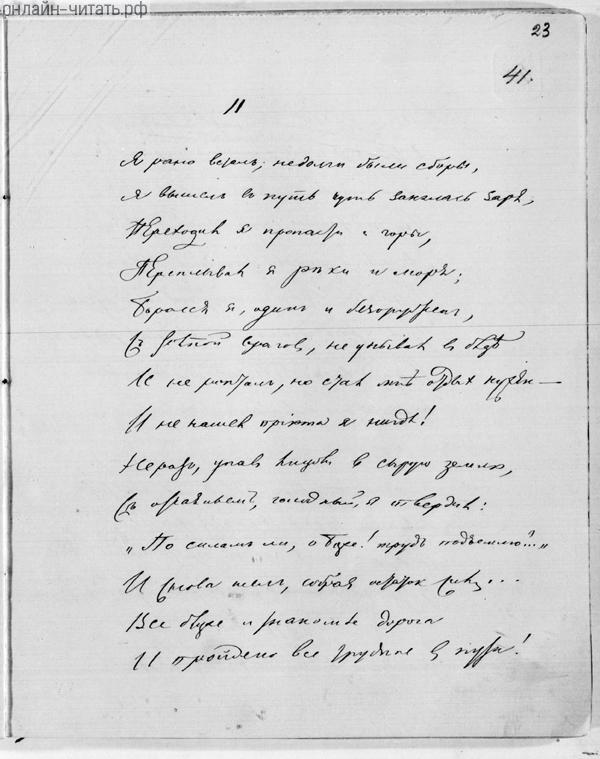 онлайн-читать.рф
23
41.
II
Я рано всталъ; недолги были сборы,
Я вышелъ въ путь чуть занялась заря,
Переходилъ я пропасти и горы,
Переплывалъ я рѣки и моря;
Боролся я, одинъ и безоруженъ,
Съ толпой враговъ, не унывалъ въ бѣдѣ
И не ропталъ, но сталъ мнѣ отдыхъ нуженъ —
И не нашелъ пріюта я нигдѣ!
Не разъ, упавъ лицомъ въ сырую землю,
Съ отчаяньемъ, голодный, я твердилъ:
„По силамъ ли, о Боже! трудъ подъемлю?..."
И снова шелъ, собравъ остатокъ силъ...
Все ближе и знакомѣе дорога
И пройдено все трудное въ пути!